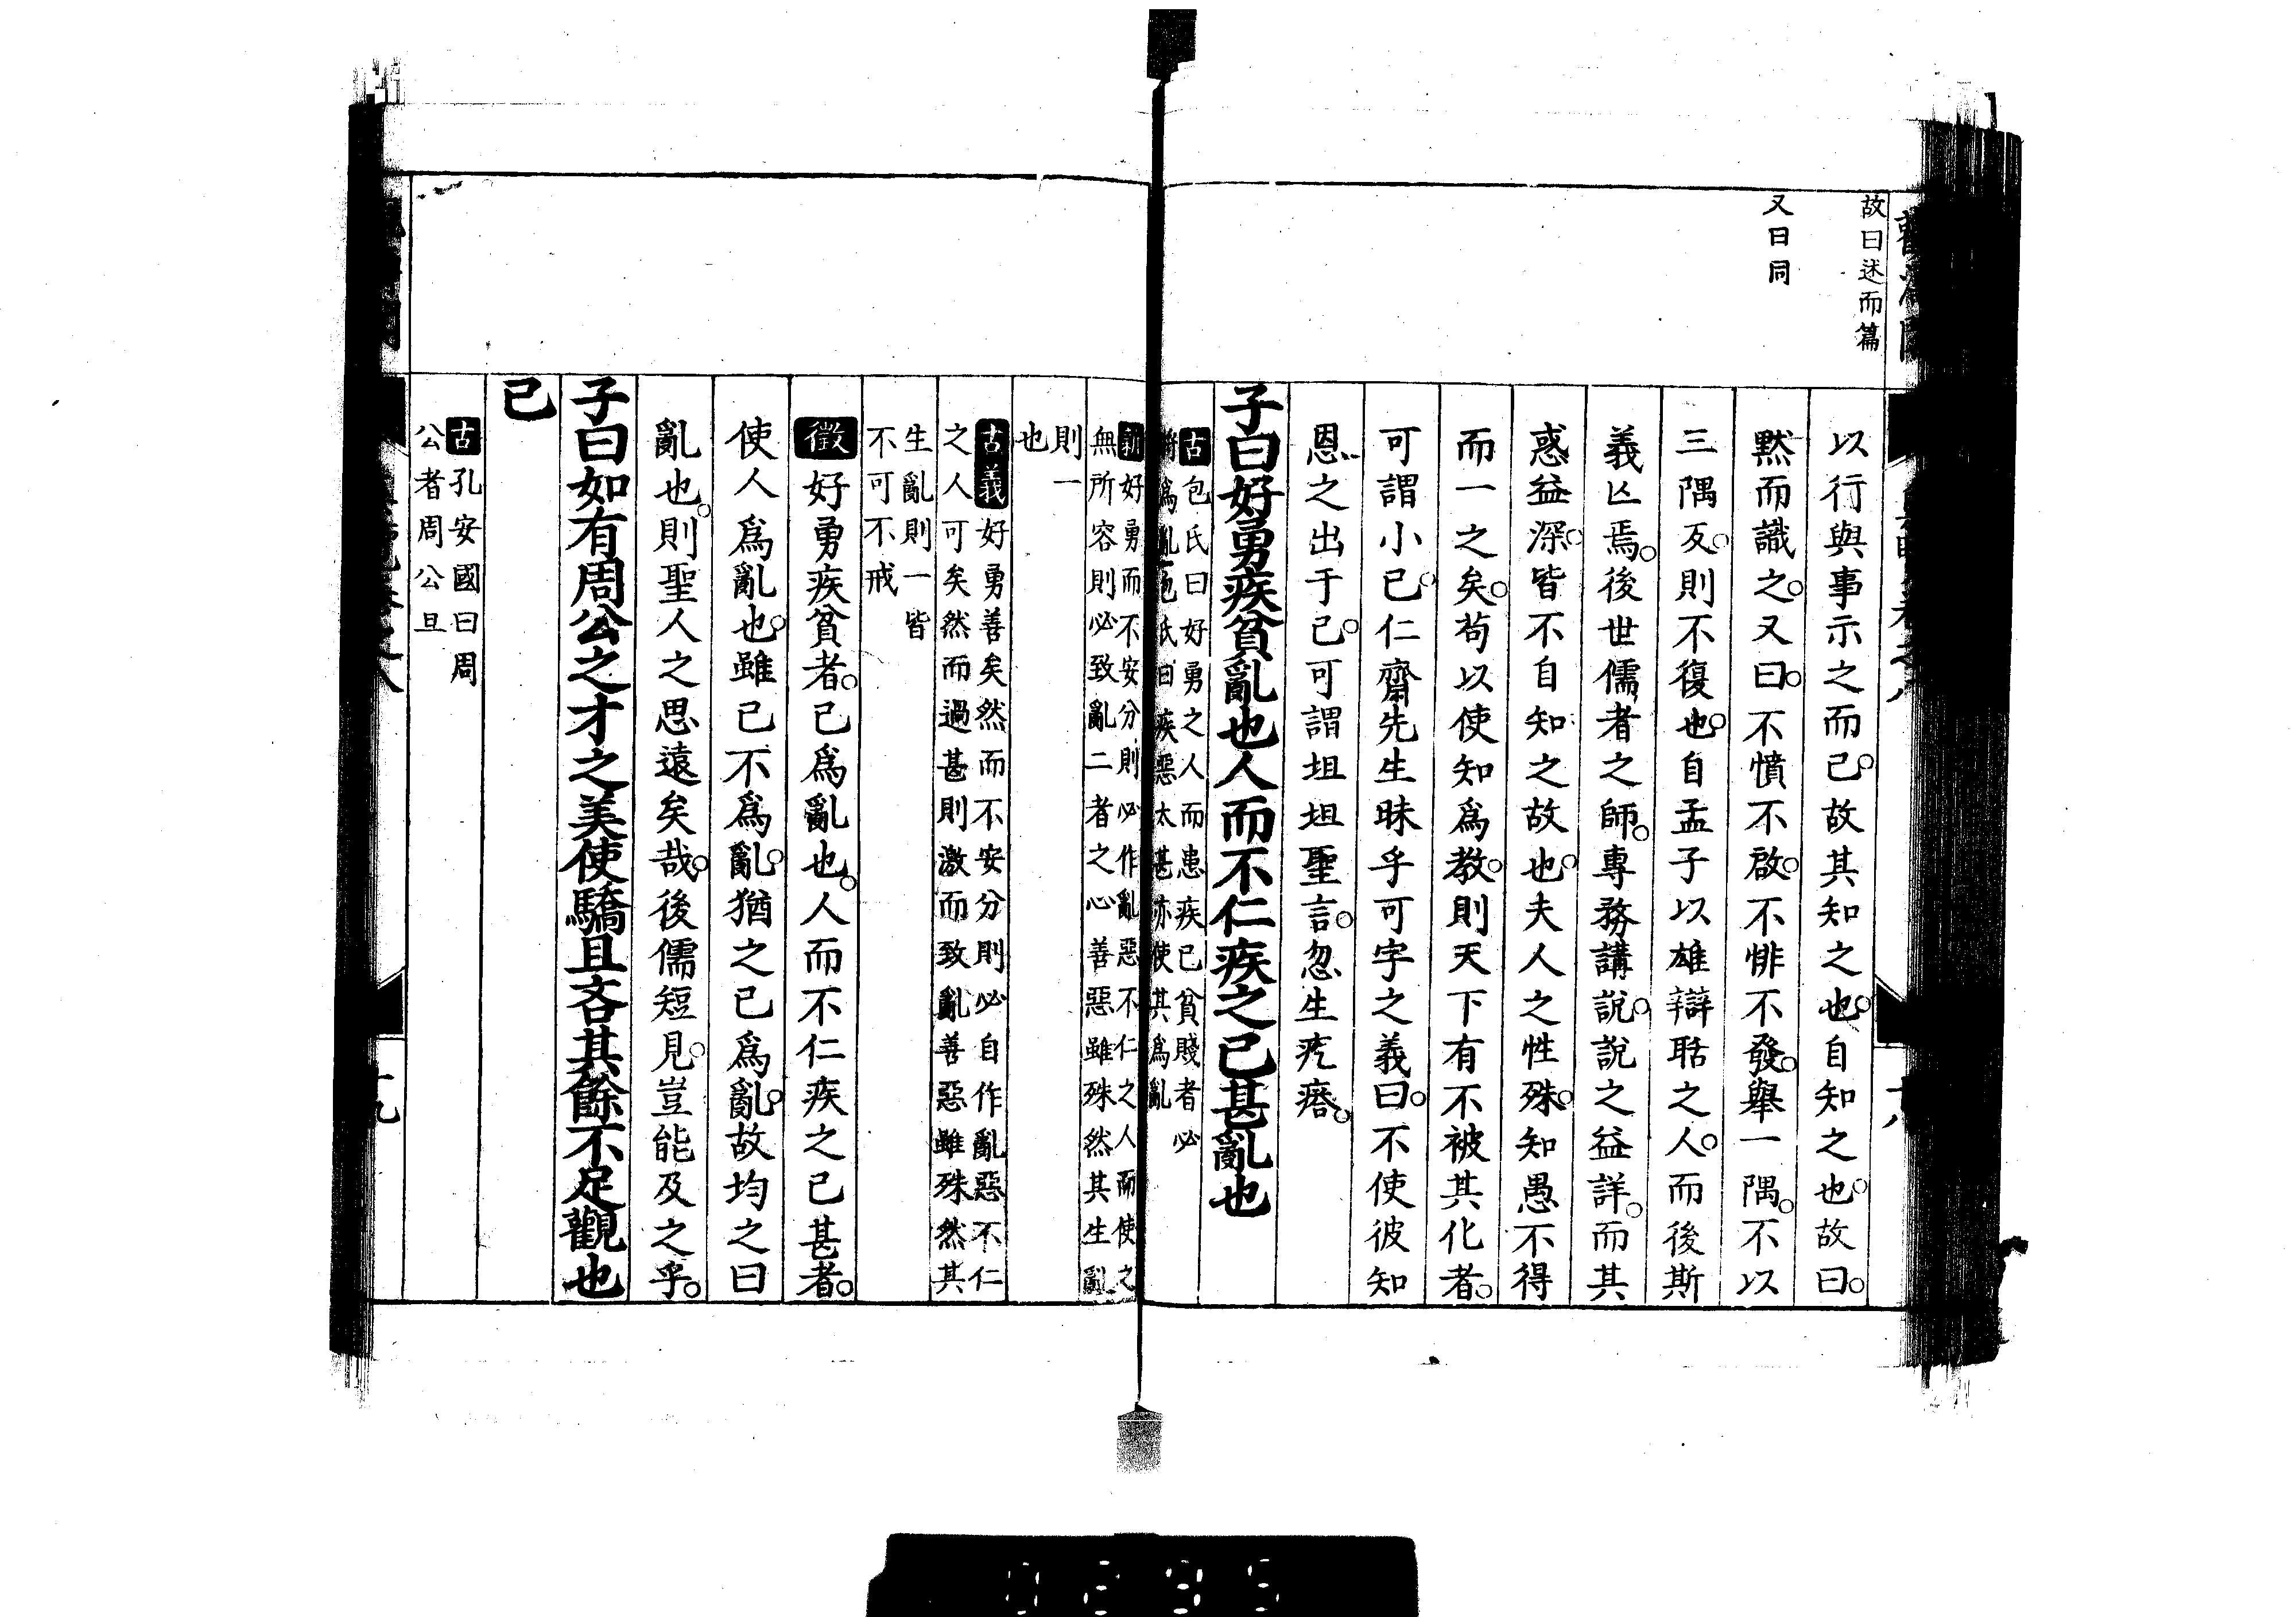 故曰述而篇
又曰同
以行與事示之而已故其知之也自知之也故曰
默而識之又曰不憤不啟不悱不發舉一隅不以
三隅反則不復也自孟子以雄辯聒之人而後斯
義亾焉後世儒者之師專務講說說之益詳而其
惑益深皆不自知之故也夫人之性殊知愚不得
而一之矣苟以使知爲教則天下有不被其化者
可謂小已仁齋先生昧乎可字之義曰不使彼知
恩之出于己可謂坦坦聖言忽生疙瘩
子曰好勇疾貧亂也人而不仁疾之已甚亂也
古包氏曰好勇之人而患疾己貧賤者必
將爲亂也包氏曰疾惡太甚亦使其爲亂
新好勇而不安分則必作亂惡不仁之人而使之
無所容則必致亂二者之心善惡雖殊然其生亂
則一
也
古義好勇善矣然而不安分則必自作亂惡不仁
之人可矣然而過甚則激而致亂善惡雖殊然其
生亂則一皆
不可不戒
徵好勇疾貧者己爲亂也人而不仁疾之已甚者
使人爲亂也雖己不爲亂猶之己爲亂故均之曰
亂也則聖人之思遠矣哉後儒短見豈能及之乎
子曰如有周公之才之美使驕且吝其餘不足觀也
已
古孔安國曰周
公者周公旦
十九